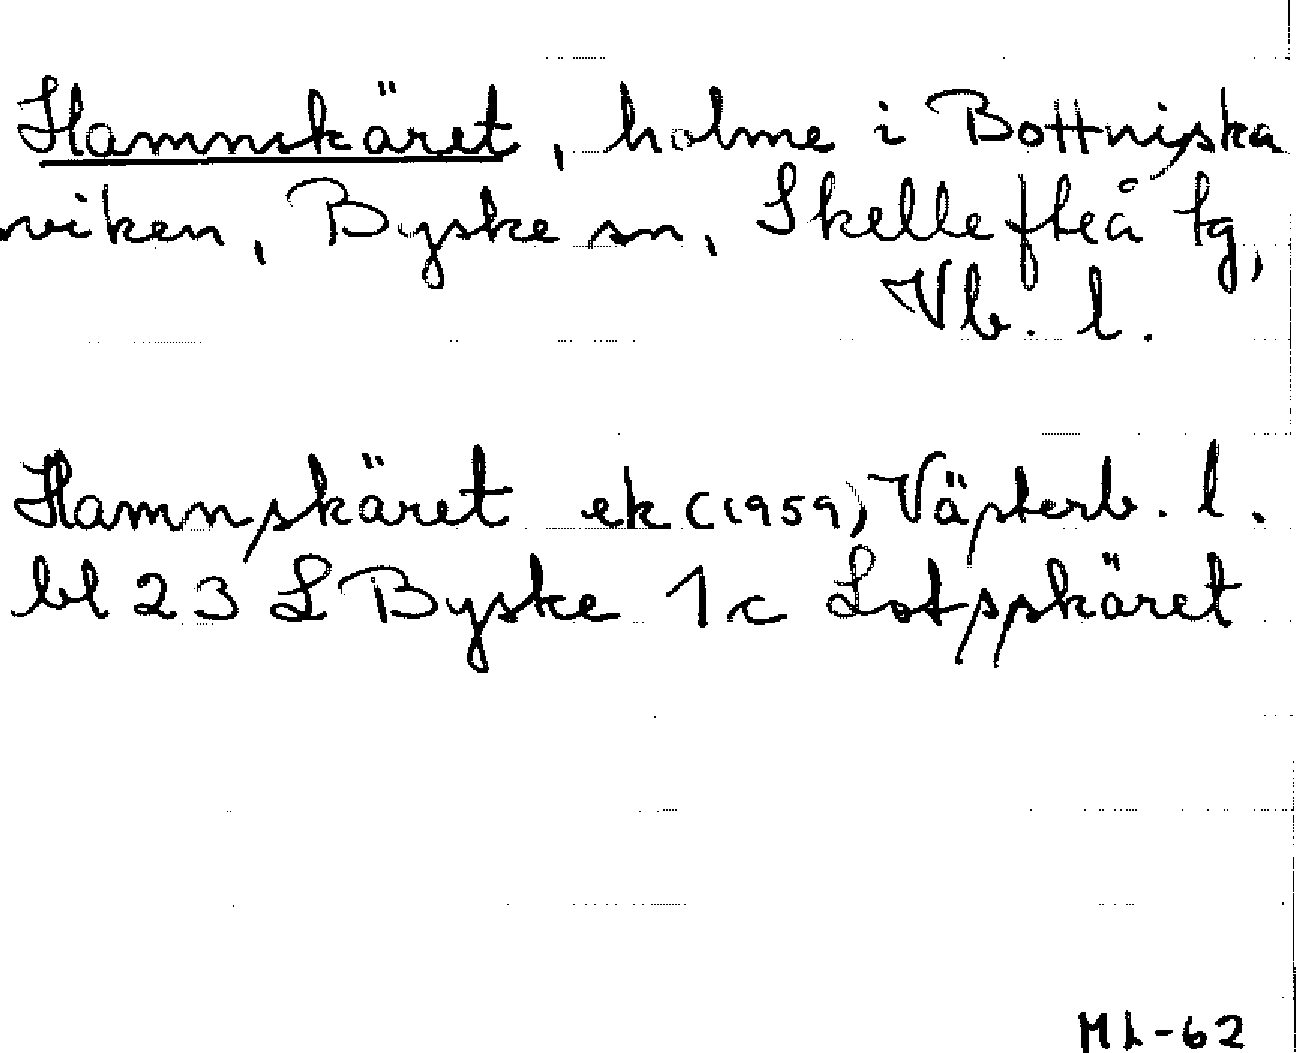 Hamnskäret, holme i Bottniska
viken, Byske sn, Skellefteå tg,
Vb. l.
Hamnskäret ek (1959) Västerb. l.
bl 23 L Byske 1c Lotsskäret
ML-62